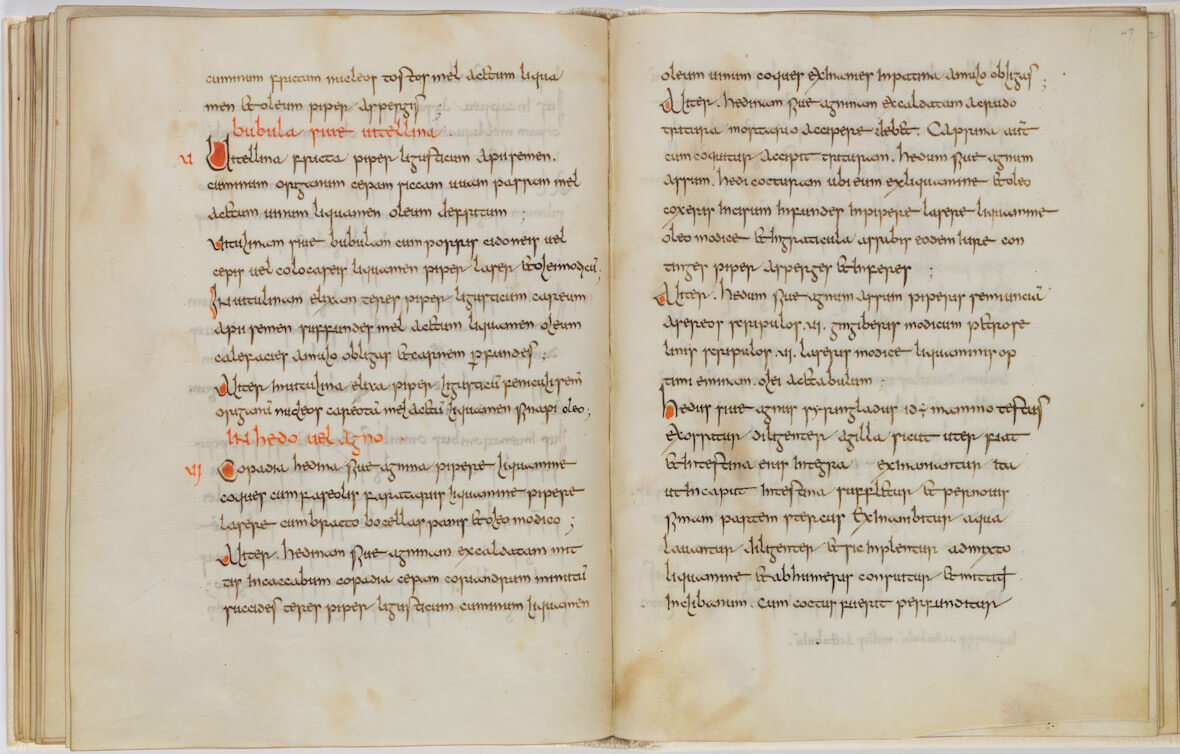 cuminum frictum nucleos tostos mel acetum liqua
men & oleum piper aspergis ;
bubula sive vitellina
VI Vitellina fricta piper ligusticum apii semen.
cuminum origanum cepam siccam uuam passam mel
acetum uinum liquamen oleum defritum ;
Vitulinam siue bubulam cum porris cidoneis uel
cepis uel colocaseis liquamen piper laser & olei modicū ;
In uitulinam elixam teres piper ligusticum careum
apii semen suffundes mel acetum liquamen oleum
calefacies amulo obligas & carnem perfundes ;
Aliter in uitulina elixa piper ligusticū feniculi semē
origanū nucleos careotā mel acetū liquamen sinapi oleo ;
In hedo uel agno
VII Copadia hedina siue agnina pipere liquamine
coques cum faseolis faratariis liquamine pipere
lasere cum bracto bocellas panis & oleo modico ;
Aliter . hedinam siue agninam excaldatam mit
tis in caccabum copadia cepam coriandrum minutū
succides teres piper ligusticum cuminum liquamen
47
oleum uinum coques exinanies in patina amulo obligas ;
Aliter . hedinam siue agninam excaldatam a crudo
trituram mortario accipere deb& . Caprina aūt
cum coquitur accipit trituram . hedum siue agnum
assum . hedi cocturam ubi eum ex liquamine & oleo
coxeris incisum infundes in pipere lasere liquamine
oleo modice & in graticula assabis eodem iure con
tinges piper asperges & inferes ;
Aliter . hedum siue agnum assum piperis semunciā
asereos scripulos . VI . gingiberis modicum p&rose
linis scripulos . VI . laseris modice liquaminis op
timi eminam . olei ac&abulum ;
Hedus siue agnus syringiadus id ÷ mammotestus
exossatur diligenter a gilla sicut uter fiat
& intestina eius integra exinaniuntur ita
ut in caput intestina suffl&ur & per nouis
simam partem stercus exinanibitur aqua
lauantur diligenter & sic implentur admixto
liquamine & ab humeris consuitur & mittitur
in clibanum . Cum coctus fuerit perfunditur